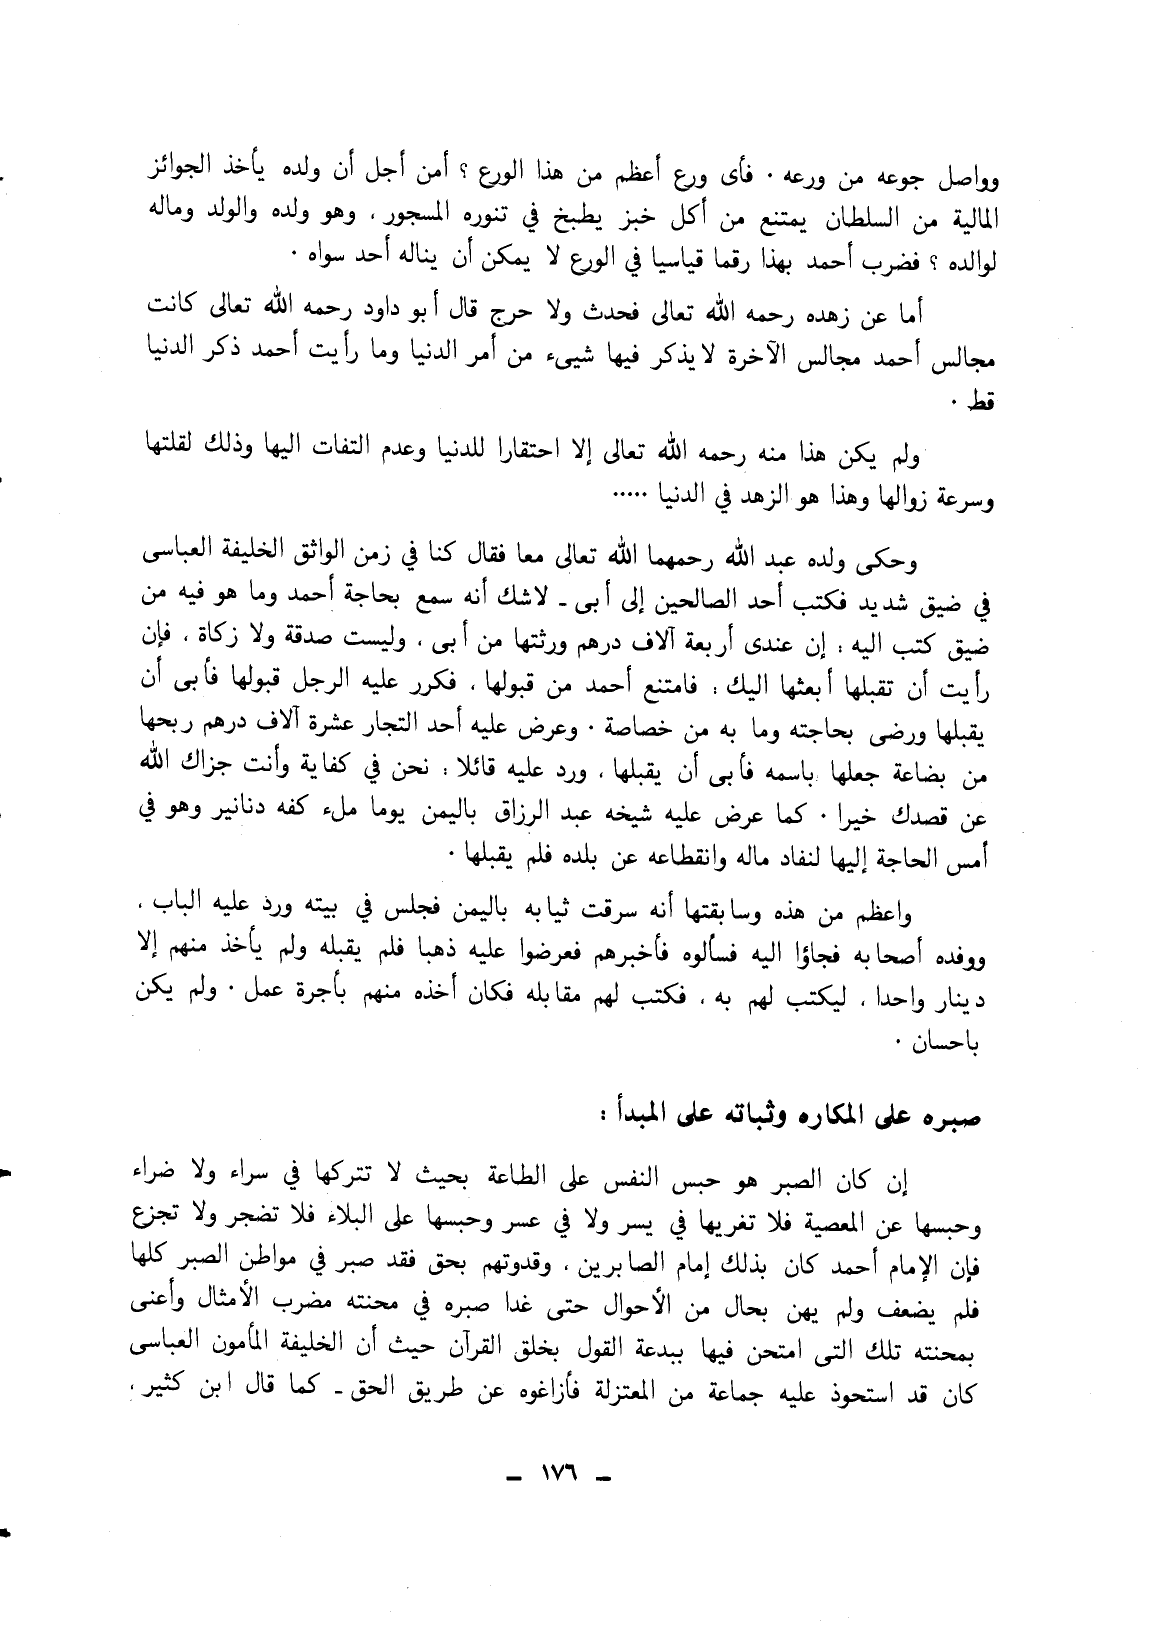 وواصل جوعه من ورعه . فأى ورع أعظم من هذا الورع ؟ أمن أجل أن ولده يأخذ الجوائز
المالية من السلطان يمتنع من أكل خبز يطبخ في تنوره المسجور ، وهو ولده والولد وماله
لوالده ؟ فضرب أحمد بهذا رقما قياسيا في الورع لا يمكن أن يناله أحد سواه .
أما عن زهده رحمه الله تعالى فحدث ولا حرج قال أبو داود رحمه الله تعالى كانت
مجالس أحمد مجالس الآخرة لا يذكر فيها شيىء من أمر الدنيا وما رأيت أحمد ذكر الدنيا
قط .
ولم يكن هذا منه رحمه الله تعالى إلا احتقارا للدنيا وعدم التفات اليها وذلك لقلتها
وسرعة زوالها وهذا هو الزهد في الدنيا .....
وحكى ولده عبد الله رحمهما الله تعالى معا فقال كنا في زمن الواثق الخليفة العباسى
في ضيق شديد فكتب أحد الصالحين إلى أبى ـ لاشك أنه سمع بحاجة أحمد وما هو فيه من
ضيق كتب اليه : إن عندى أربعة آلاف درهم ورثتها من أبى ، وليست صدقة ولا زكاة ، فإن
رأيت أن تقبلها أبعثها اليك : فامتنع أحمد من قبولها ، فكرر عليه الرجل قبولها فأبى أن
يقبلها ورضى بحاجته وما به من خصاصة . وعرض عليه أحد التجار عشرة آلاف درهم ربحها
من بضاعة جعلها باسمه فأبى أن يقبلها ، ورد عليه قائلا : نحن في كفاية وأنت جزاك الله
عن قصدك خيرا . كما عرض عليه شيخه عبد الرزاق باليمن يوما ملء كفه دنانير وهو في
أمس الحاجة إليها لنفاد ماله وانقطاعه عن بلده فلم يقبلها .
واعظم من هذه وسابقتها أنه سرقت ثيابه باليمن فجلس في بيته ورد عليه الباب ،
ووفده أصحابه فجاؤا اليه فسألوه فأخبرهم فعرضوا عليه ذهبا فلم يقبله ولم يأخذ منهم إلا
دينار واحدا ، ليكتب لهم به ، فكتب لهم مقابله فكان أخذه منهم بأجرة عمل . ولم يكن
باحسان .
صبره على المكاره وثباته على المبدأ :
إن كان الصبر هو حبس النفس على الطاعة بحيث لا تتركها في سراء ولا ضراء
وحبسها عن المعصية فلا تغريها في يسر ولا في عسر وحبسها على البلاء فلا تضجر ولا تجزع
فإن الإمام أحمد كان بذلك إمام الصابرين ، وقدوتهم بحق فقد صبر في مواطن الصبر كلها
فلم يضعف ولم يهن بحال من الأحوال حتى غدا صبره في محنته مضرب الأمثال وأعنى
بمحنته تلك التى امتحن فيها ببدعة القول بخلق القرآن حيث أن الخليفة المأمون العباسى
كان قد استحوذ عليه جماعة من المعتزلة فأزاغوه عن طريق الحق ـ كما قال ابن كثير ،
ـ ١٧٦ ـ